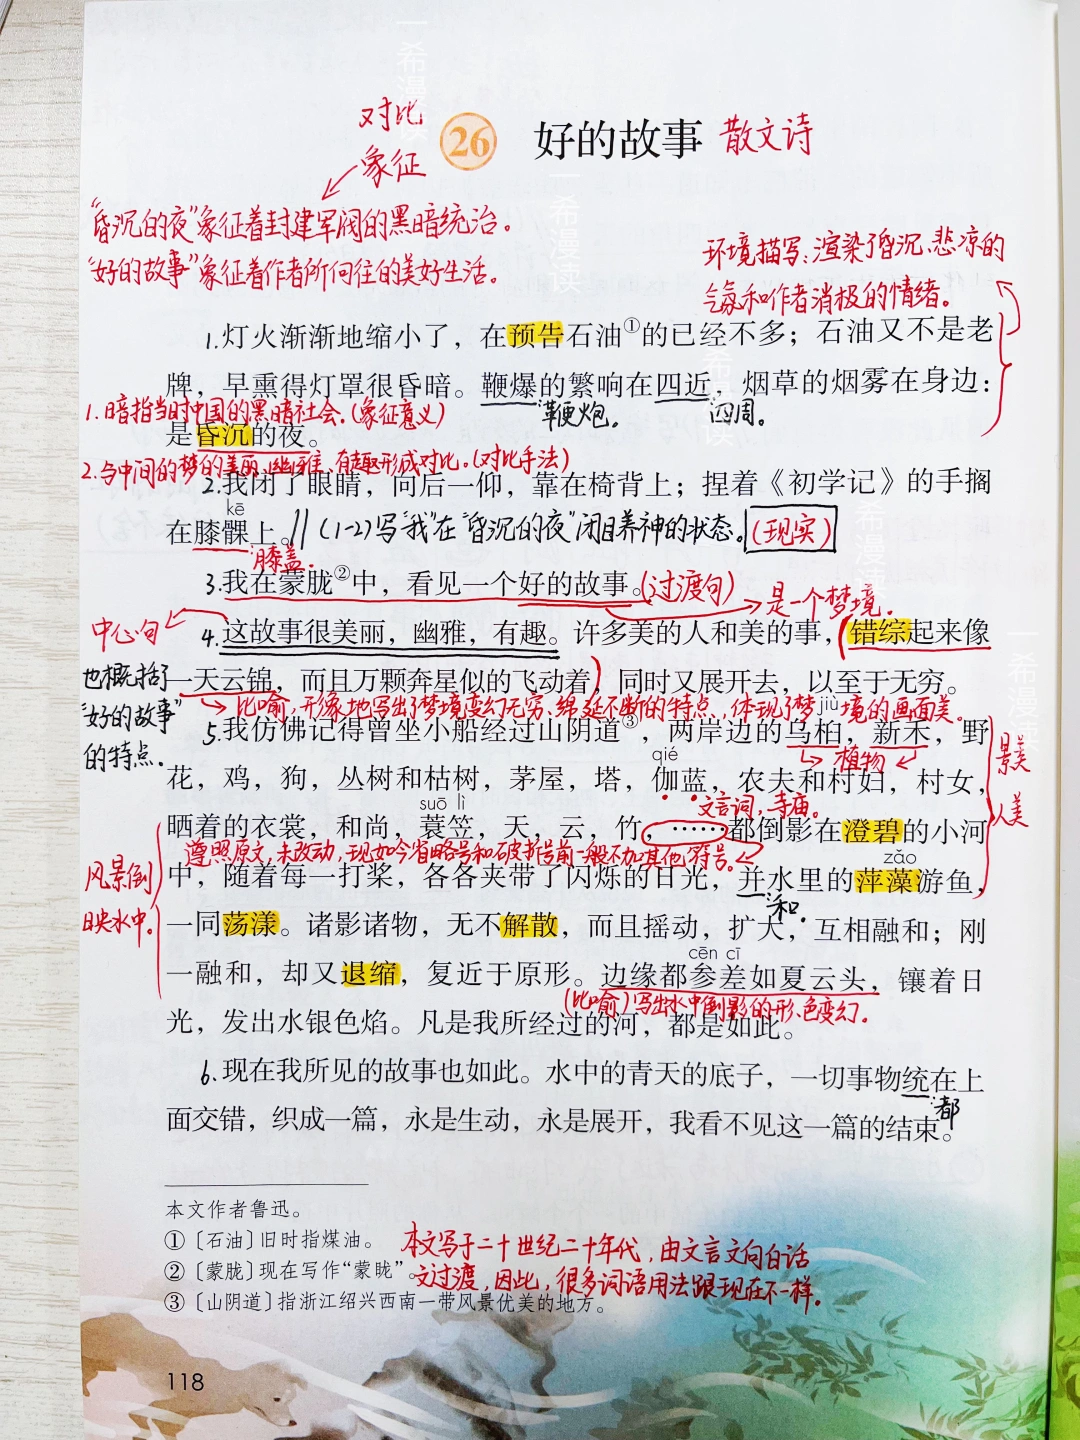 对比
象征
26 好的故事 散文诗
“昏沉的夜”象征着封建军阀的黑暗统治。
“好的故事”象征着作者所向往的美好生活。
环境描写:渲染了昏沉、悲凉的
气氛和作者消极的情绪。
1.灯火渐渐地缩小了，在预告石油①的已经不多；石油又不是老
牌，早熏得灯罩很昏暗。鞭爆的繁响在四近，烟草的烟雾在身边：
1.暗指当时中国的黑暗社会。(象征意义)
:鞭炮。
:四周。
是昏沉的夜。
2.与中间的梦的美丽、幽雅、有趣形成对比。(对比手法)
2.我闭了眼睛，向后一仰，靠在椅背上；捏着《初学记》的手搁
kē
在膝髁上。‖(1-2)写“我”在“昏沉的夜”闭目养神的状态。(现实)
:膝盖.
3.我在蒙胧②中，看见一个好的故事。(过渡句)
是一个梦境.
中心句
4.这故事很美丽，幽雅，有趣。许多美的人和美的事，错综起来像
也概括了
“好的故事”
的特点.
一天云锦，而且万颗奔星似的飞动着，同时又展开去，以至于无穷。
比喻,形象地写出了梦境变幻无穷、绵延不断的特点,体现了梦境的画面美。
jiù
5.我仿佛记得曾坐小船经过山阴道③，两岸边的乌桕，新禾，野
植物
景美
人美
qié
花，鸡，狗，丛树和枯树，茅屋，塔，伽蓝，农夫和村妇，村女，
文言词,寺庙。
suō lì
晒着的衣裳，和尚，蓑笠，天，云，竹，……都倒影在澄碧的小河
遵照原文,未改动,现如今省略号和破折号前一般不加其他符号。
zǎo
风景倒
映水中。
中，随着每一打桨，各各夹带了闪烁的日光，并水里的萍藻游鱼，
:和.
一同荡漾。诸影诸物，无不解散，而且摇动，扩大，互相融和；刚
cēn cī
一融和，却又退缩，复近于原形。边缘都参差如夏云头，镶着日
(比喻)写出水中倒影的形、色变幻.
光，发出水银色焰。凡是我所经过的河，都是如此。
6.现在我所见的故事也如此。水中的青天的底子，一切事物统在上
:都
面交错，织成一篇，永是生动，永是展开，我看不见这一篇的结束。
本文作者鲁迅。
①〔石油〕旧时指煤油。
②〔蒙胧〕现在写作“蒙眬”。
③〔山阴道〕指浙江绍兴西南一带风景优美的地方。
本文写于二十世纪二十年代,由文言文向白话
文过渡,因此,很多词语用法跟现在不一样。
118
一希漫读
一希漫读
一希漫读
一希漫读
一希漫读